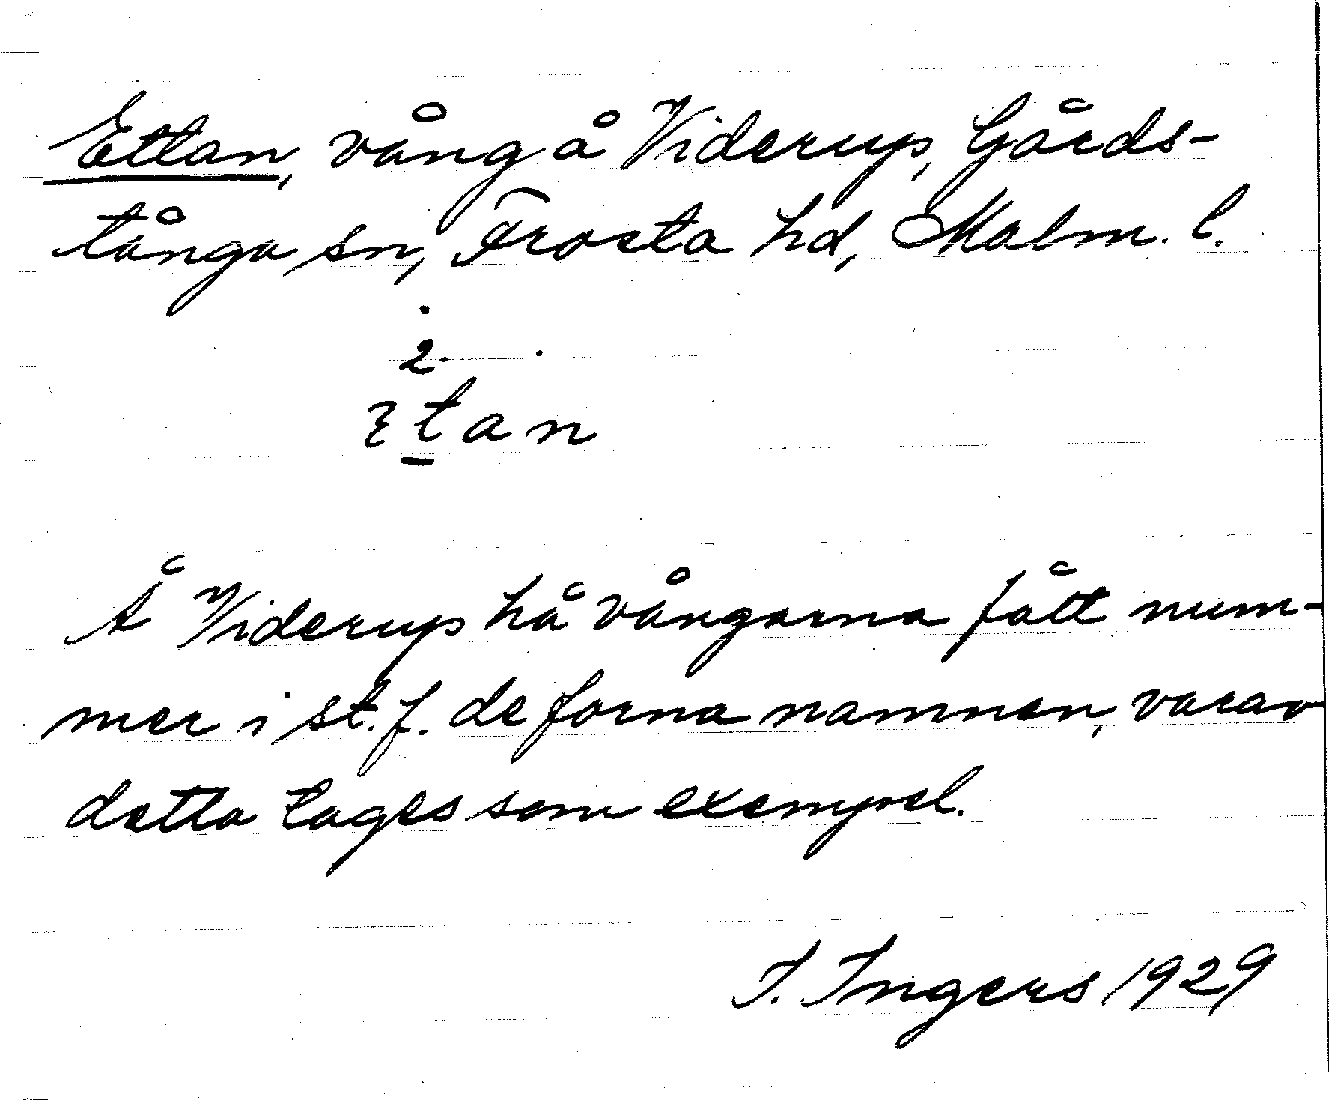 Ettan, vång å Viderup, Gårds-
tånga sn, Frosta hd, Malm. l.
2
ɛtan
Å Viderup ha vångarna fått num-
mer i st. f. de forna namnen, varav
detta tages som exempel.
I. Ingers 1929